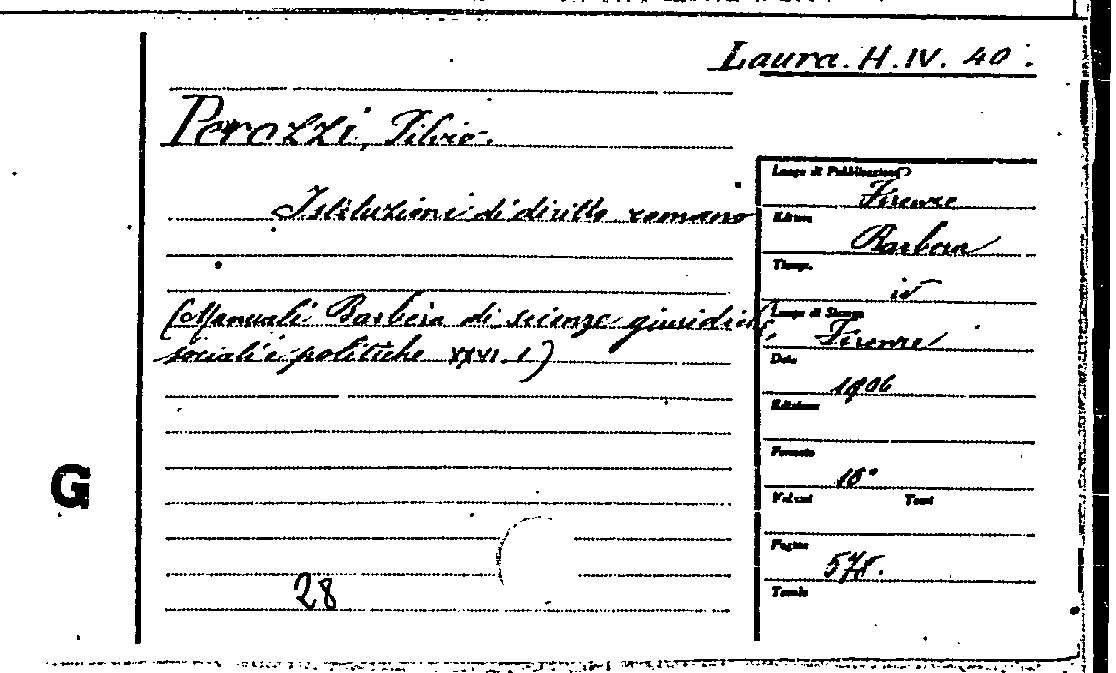 Laura. H. IV. 40.
Perozzi, Silvio.
Istituzioni di diritto romano
(Manuali Barbèra di scienze giuridiche,
sociali e politiche XXVI. 1)
G
28
Luogo di Pubblicazione
Firenze
Editore
Barbera
Tipogr.
id
Luogo di Stampa
Firenze
Data
1906
Edizione
Formato
16°
Volumi Tomi
Pagine
Tavole